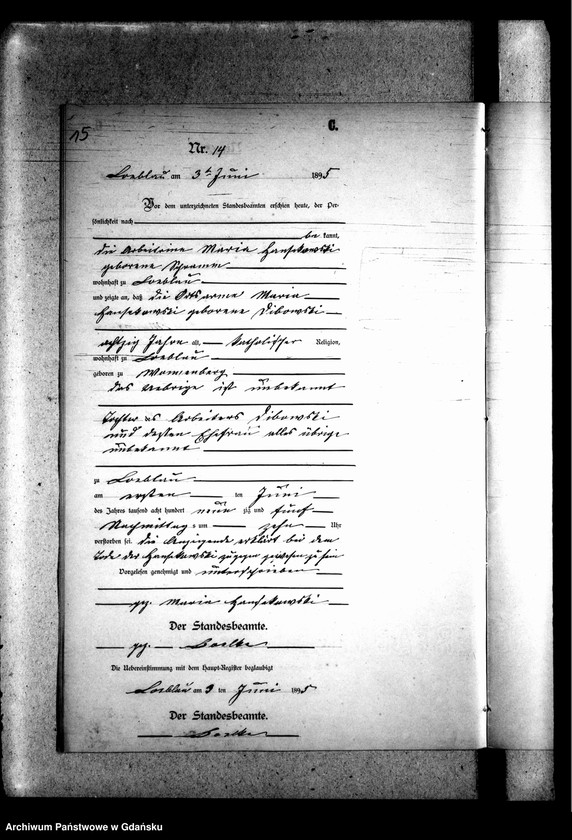 15
C.
Nr. 14
Loeblau am 3t Juni 1895
Vor dem unterzeichneten Standesbeamten erschien heute, der Per-
sönlichkeit nach
be kannt,
die Arbeiterin Maria Hansekowski
geborene Schramm
wohnhaft zu Loeblau
und zeigte an, daß die Ortsarme Maria
Hansekowski geborene Dibowski
achtzig Jahre alt, katholischer Religion,
wohnhaft zu Loeblau
geboren zu
das Uebrige ist unbekannt
Tochter es Arbeiters Dibowski
und dessen Ehefrau alles übrige
unbekannt
zu Loeblau
am ersten ten Juni
des Jahres tausend acht hundert neun zig und fünf
Nachmittag s um zehn Uhr
verstorben sei. Die Anzeigende erklärt bei dem
Tode der Hansekowski zugegen gewesen zu sein
Vorgelesen genehmigt und unterschrieben
gez. Maria Hansekowski
Der Standesbeamte.
gez.
Die Uebereinstimmung mit dem Haupt-Register beglaubigt
Loeblau am 3 ten Juni 1895
Der Standesbeamte.
Archiwum Państwowe w Gdańsku